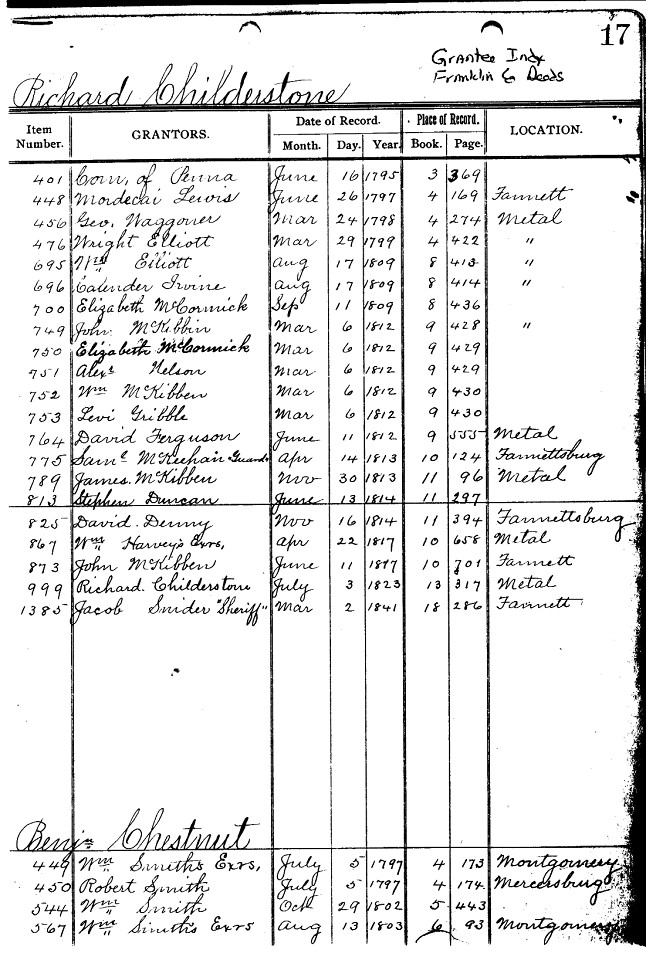 17
Grantee Indx
Franklin Co Deeds
Richard Childerstone
Item Number. GRANTORS. Date of Record. Place of Record. LOCATION.
Month. Day. Year. Book. Page.
401 Com, of Penna June 16 1795 3 369
448 Mordecai Lewis June 26 1797 4 169 Fannett
456 Geo, Waggoner Mar 24 1798 4 274 Metal
476 Wright Elliott Mar 29 1799 4 422 "
695 Wm Elliott Aug 17 1809 8 413 "
696 Calender Irvine Aug 17 1809 8 414 "
700 Elizabeth McCormick Sep 11 1809 8 436
749 John McKibbin Mar 6 1812 9 428 "
750 Elizabeth McCormick Mar 6 1812 9 429
751 Alexr Nelson Mar 6 1812 9 429
752 Wm McKibben Mar 6 1812 9 430
753 Levi Gribble Mar 6 1812 9 430
764 David Ferguson June 11 1812 9 555 Metal
775 Saml McKechan Guard. Apr 14 1813 10 124 Fannettsburg
789 James McKibben Nov 30 1813 11 96 Metal
813 Stephen Duncan June 13 1814 11 297
825 David Denny Nov 16 1814 11 394 Fannettsburg
867 Wm Harvey's Exrs, Apr 22 1817 10 658 Metal
873 John McKibben June 11 1817 10 701 Fannett
999 Richard Childerstone July 3 1823 13 317 Metal
1385 Jacob Snider "Sheriff" Mar 2 1841 18 286 Fannett
Benjn Chestnut
449 Wm Smith's Exrs, July 5 1797 4 173 Montgomery
450 Robert Smith July 5 1797 4 174 Mercersburg
544 Wm Smith Oct 29 1802 5 443
567 Wm Smith's Exrs Aug 13 1803 6 93 Montgomery